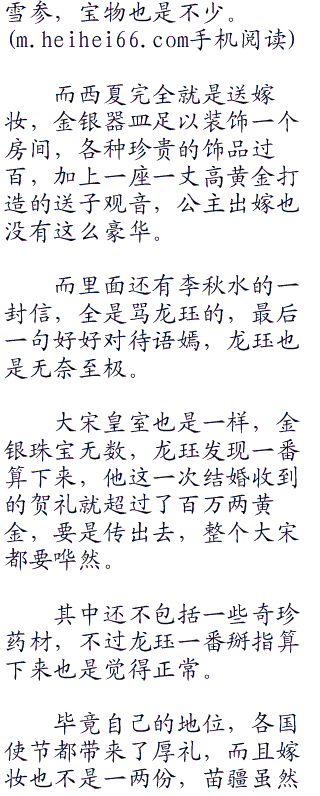 雪参，宝物也是不少。
(m.heihei66.com手机阅读)
而西夏完全就是送嫁
妆，金银器皿足以装饰一个
房间，各种珍贵的饰品过
百，加上一座一丈高黄金打
造的送子观音，公主出嫁也
没有这么豪华。
而里面还有李秋水的一
封信，全是骂龙珏的，最后
一句好好对待语嫣，龙珏也
是无奈至极。
大宋皇室也是一样，金
银珠宝无数，龙珏发现一番
算下来，他这一次结婚收到
的贺礼就超过了百万两黄
金，要是传出去，整个大宋
都要哗然。
其中还不包括一些奇珍
药材，不过龙珏一番掰指算
下来也是觉得正常。
毕竟自己的地位，各国
使节都带来了厚礼，而且嫁
妆也不是一两份，苗疆虽然